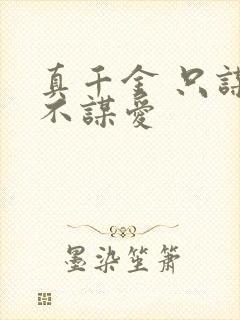 真千金 只謀
不謀愛
墨染笙簫